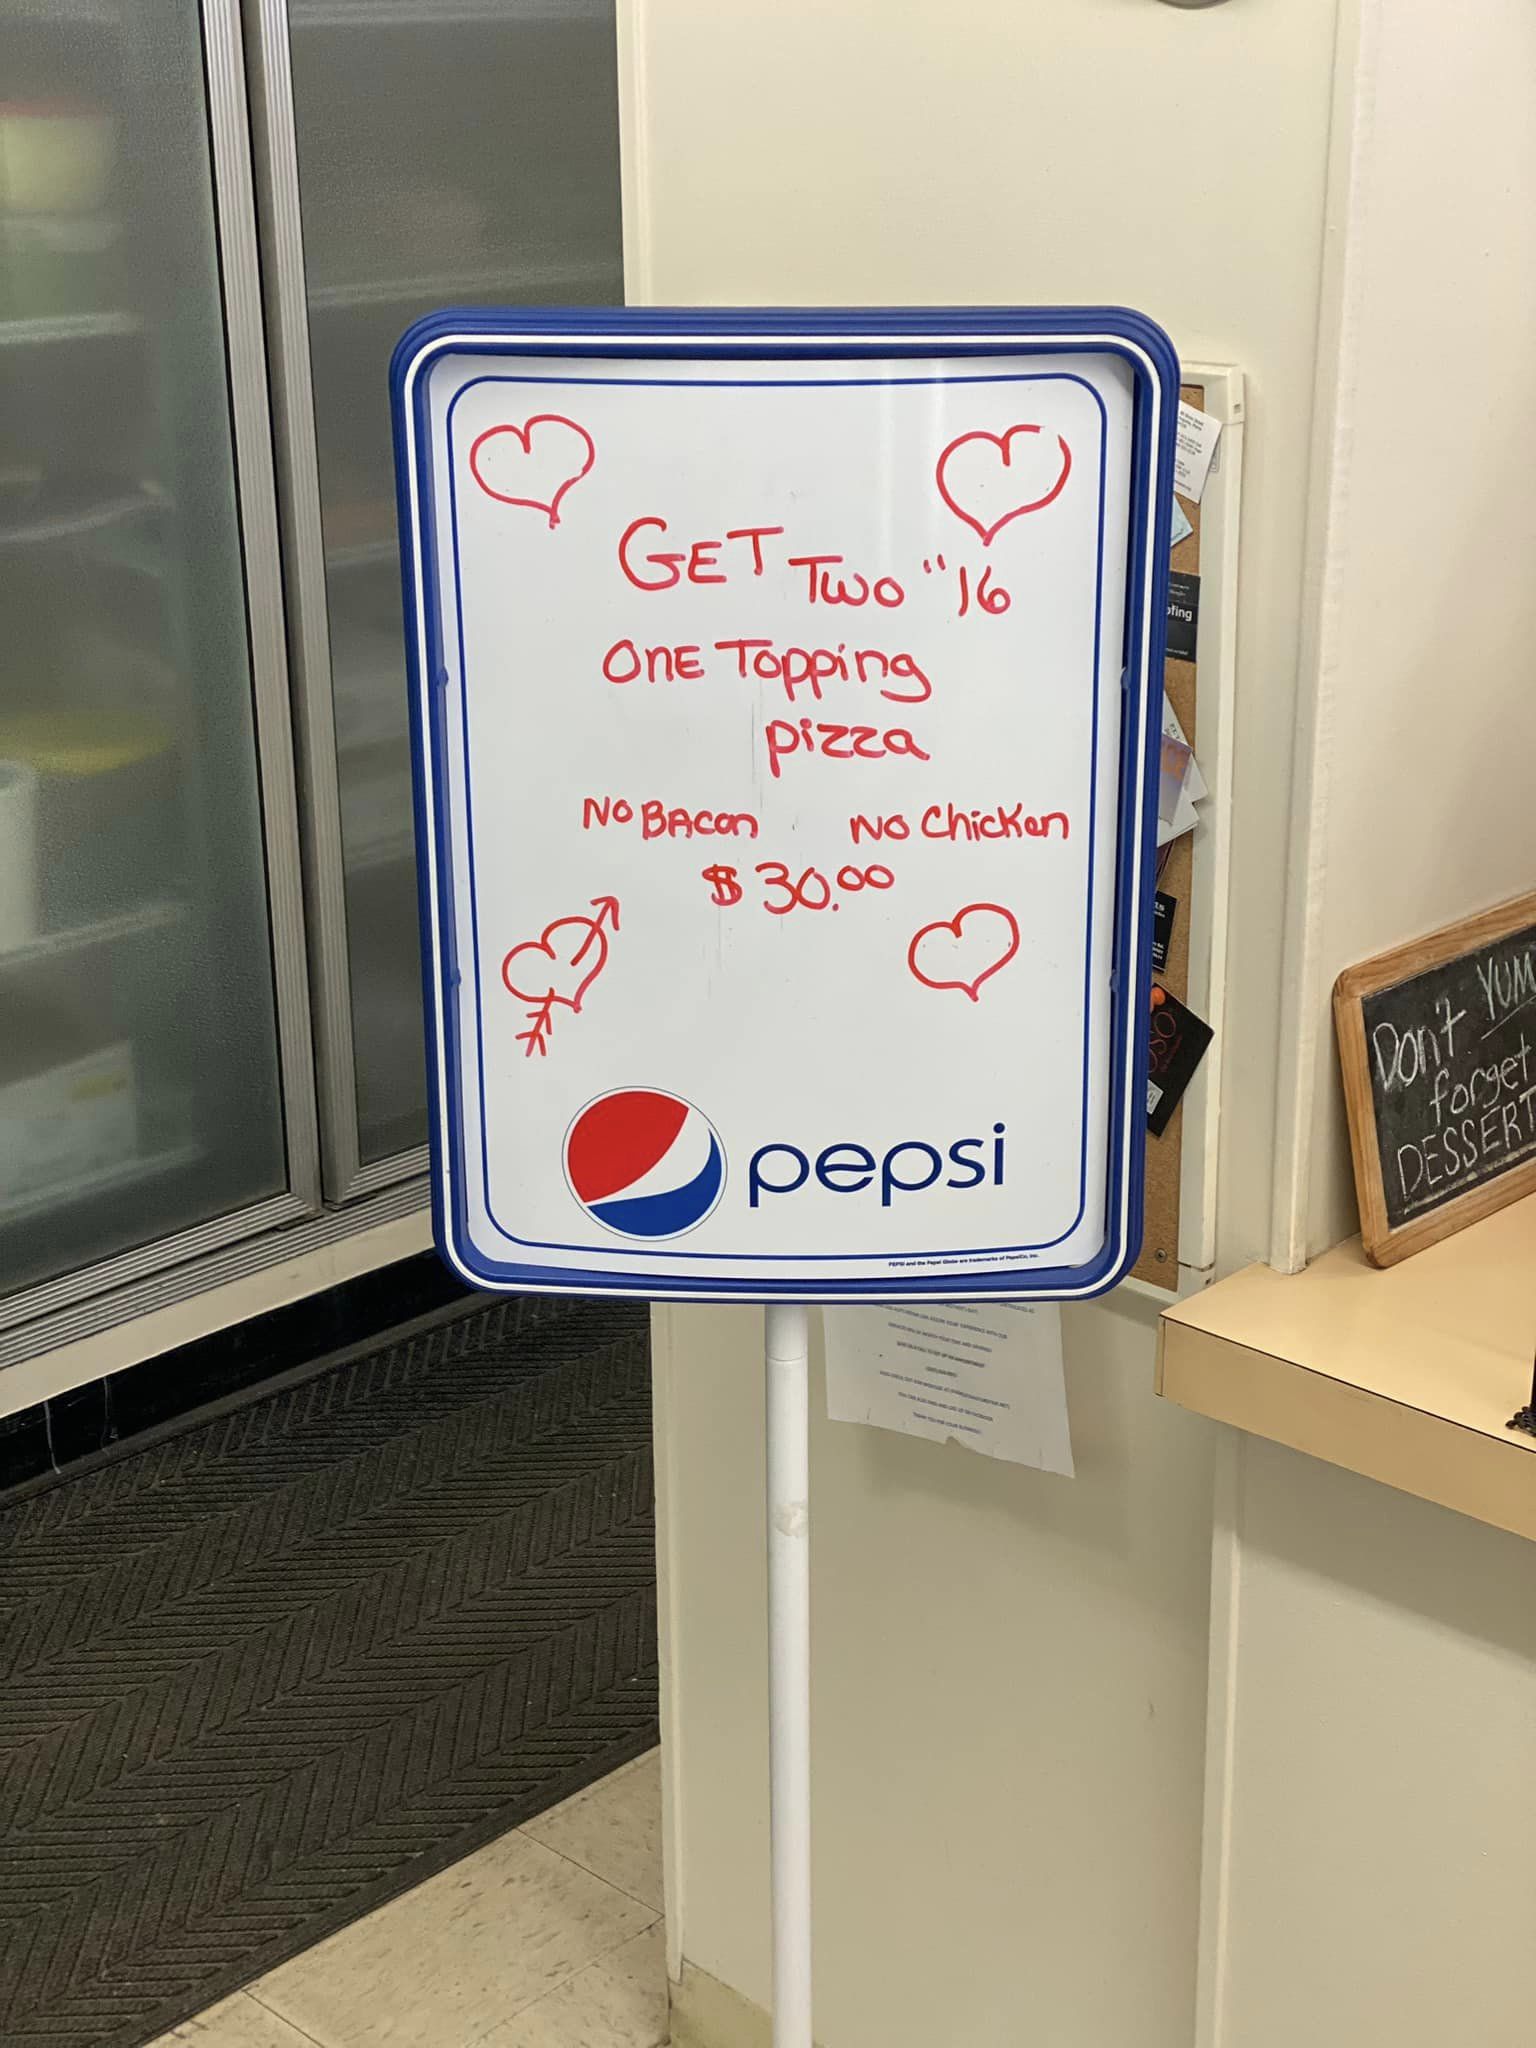 GET Two "16
ONE Topping
pizza
NO BAcon NO Chicken
$30.00
pepsi
PEPSI and the Pepsi Globe are trademarks of PepsiCo, Inc.
Don't YUM
forget
DESSERT
ofing
THANK YOU FOR YOUR BUSINESS!